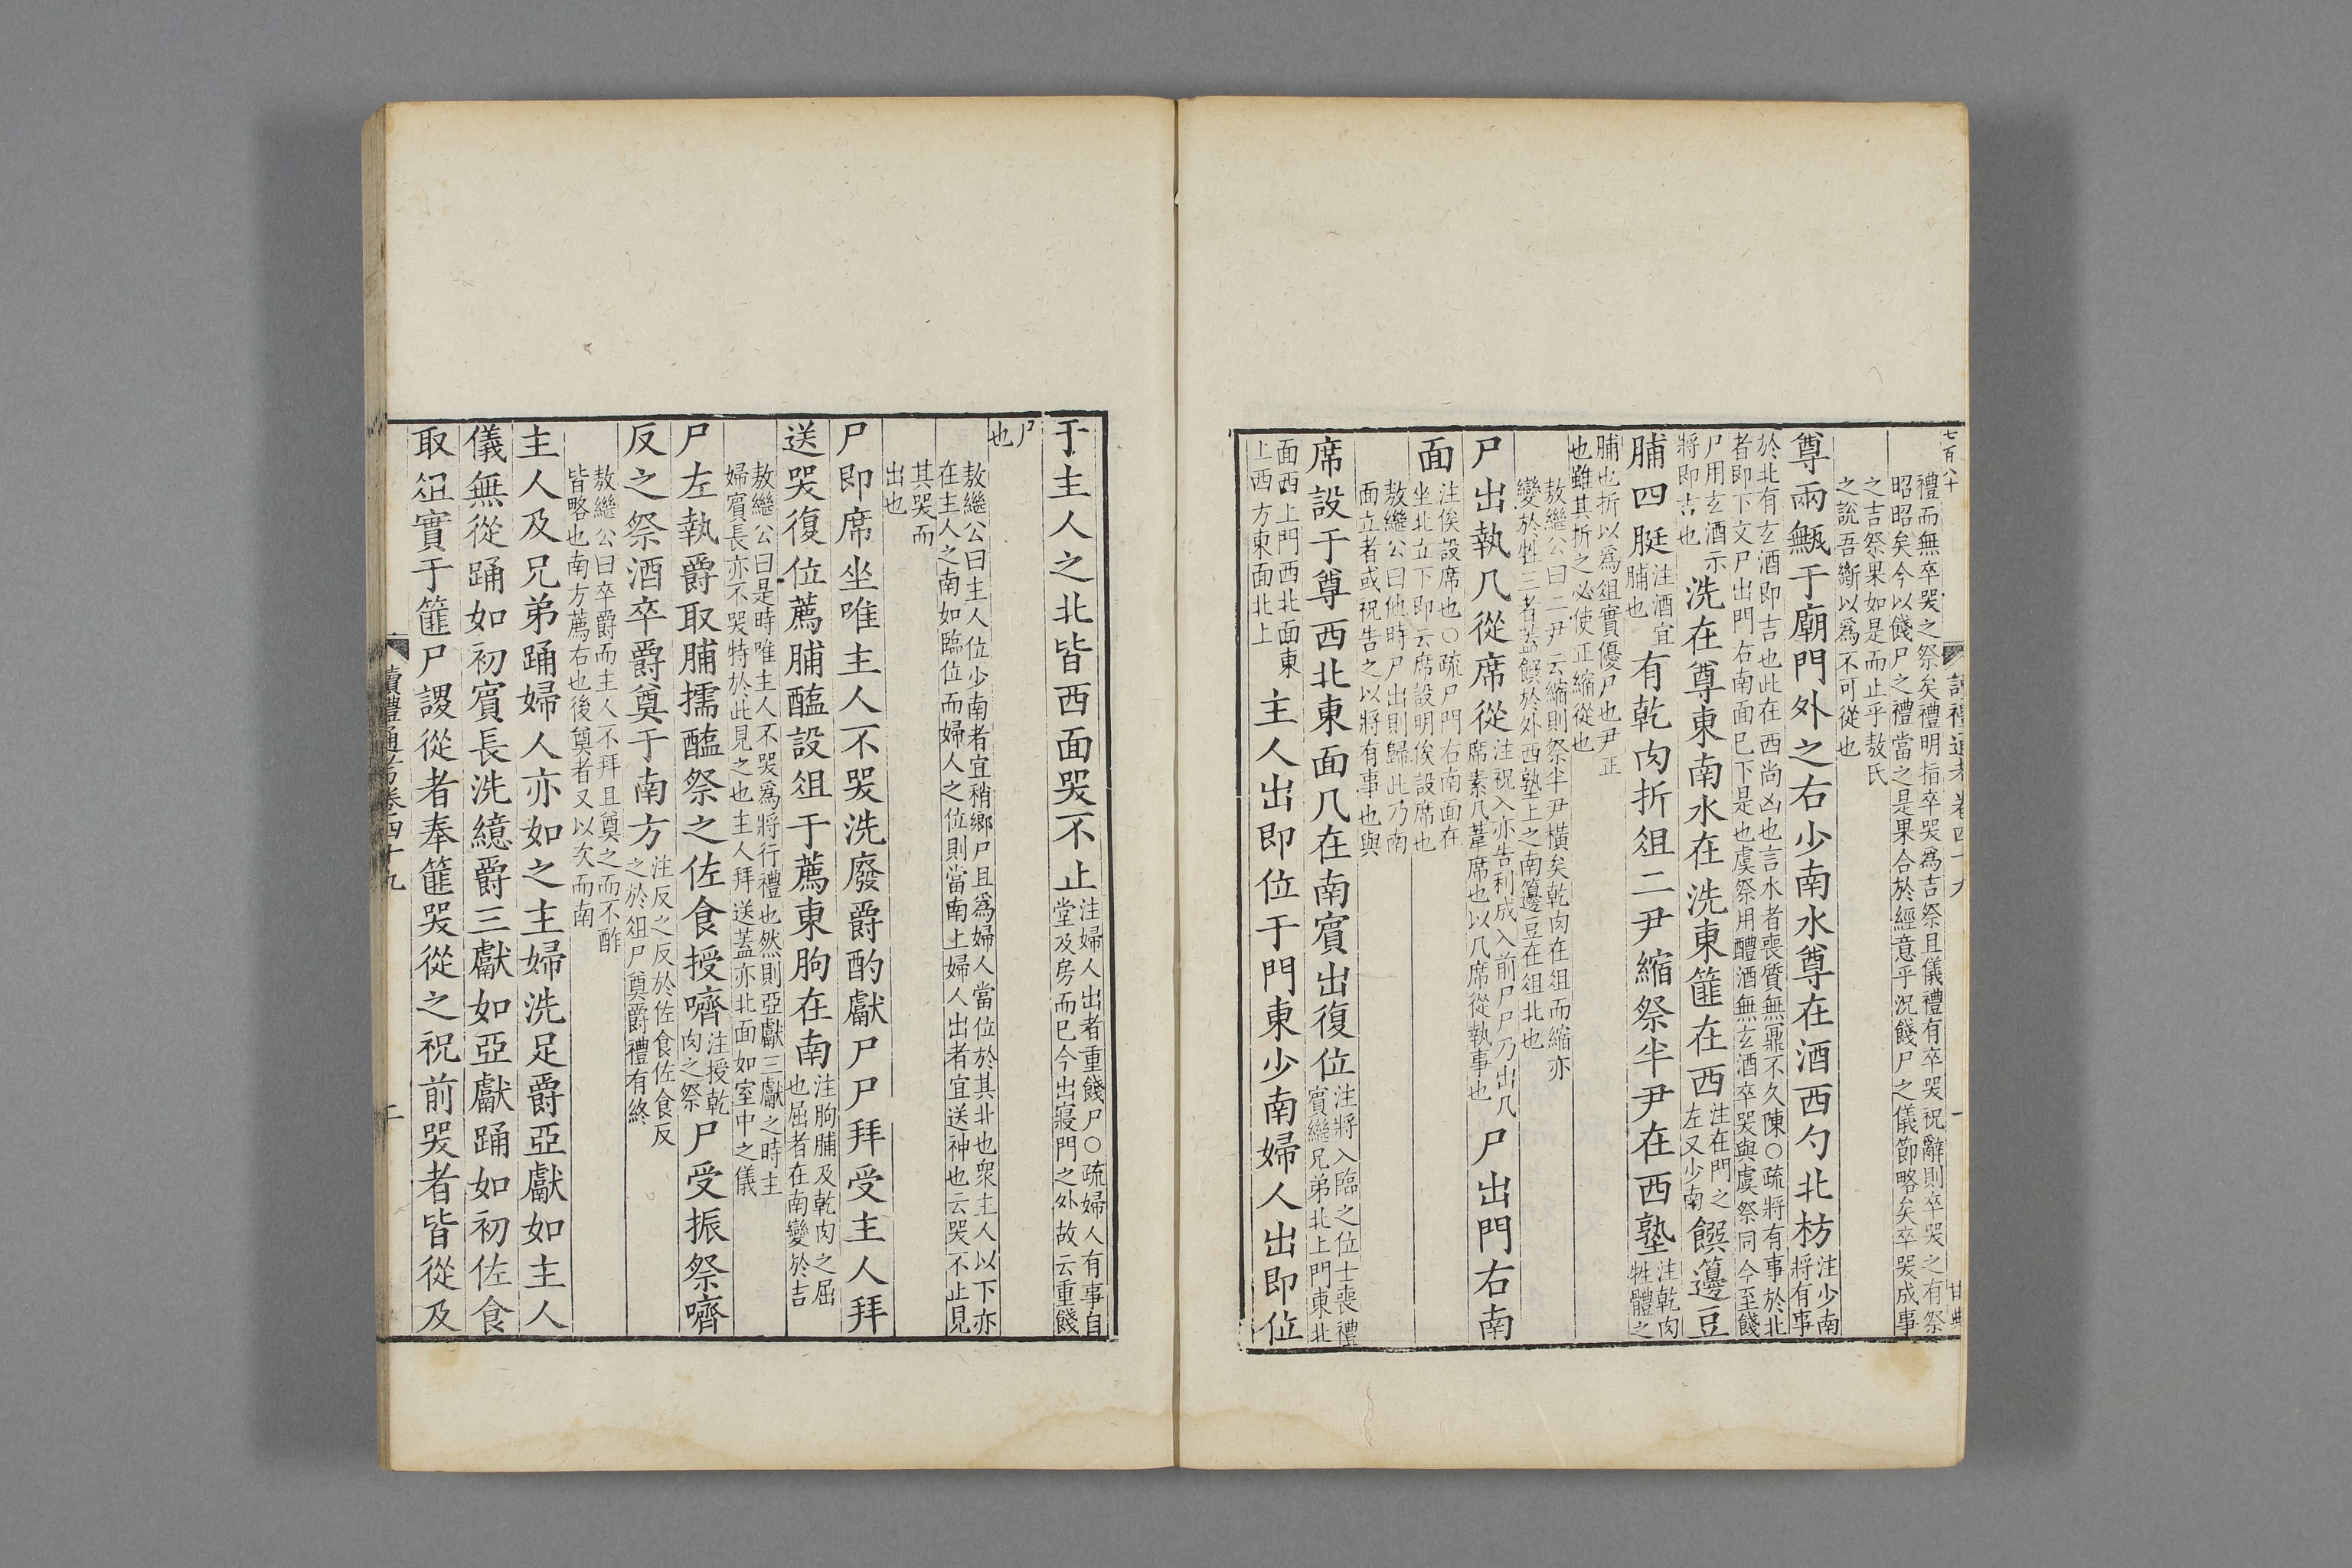 七百八十
讀禮通考卷四十九
禮而無卒哭之祭矣禮明指卒哭爲吉祭且儀禮有卒哭祝辭則卒哭之有祭
昭昭矣今以餞尸之禮當之是果合於經意乎況餞尸之儀節略矣卒哭成事
之吉祭果如是而止乎敖氏
之說吾斷以爲不可從也
尊兩甒于廟門外之右少南水尊在酒西勺北枋
注少南
將有事
於北有玄酒即吉也此在西尚凶也言水者喪質無鼏不久陳○疏將有事於北
者即下文尸出門右南面已下是也虞祭用醴酒無玄酒卒哭與虞祭同今至餞
尸用玄酒示
將即吉也
洗在尊東南水在洗東篚在西
注在門之
左又少南
饌籩豆
脯四脡
注酒宜
脯也
有乾肉折俎二尹縮祭半尹在西塾
注乾肉
牲體之
脯也折以爲俎實優尸也尹正
也雖其折之必使正縮從也
敖繼公曰二尹云縮則祭半尹橫矣乾肉在俎而縮亦
變於牲三者蓋饌於外西塾上之南籩豆在俎北也
尸出執几從席從
注祝入亦告利成入前尸尸乃出几
席素几葦席也以几席從執事也
尸出門右南
面
注俟設席也○疏尸門右南面在
坐北立下即云席設明俟設席也
敖繼公曰他時尸出則歸此乃南
面立者或祝告之以將有事也與
席設于尊西北東面几在南賓出復位
注將入臨之位士喪禮
賓繼兄弟北上門東北
面西上門西北面東
上西方東面北上
主人出即位于門東少南婦人出即位
于主人之北皆西面哭不止
注婦人出者重餞尸○疏婦人有事自
堂及房而已今出寢門之外故云重餞
尸
也
敖繼公曰主人位少南者宜稍鄉尸且爲婦人當位於其北也衆主人以下亦
在主人之南如臨位而婦人之位則當南上婦人出者宜送神也云哭不止見
其哭而
出也
尸即席坐唯主人不哭洗廢爵酌獻尸尸拜受主人拜
送哭復位薦脯醢設俎于薦東朐在南
注朐脯及乾肉之屈
也屈者在南變於吉
敖繼公曰是時唯主人不哭爲將行禮也然則亞獻三獻之時主
婦賓長亦不哭特於此見之也主人拜送蓋亦北面如室中之儀
尸左執爵取脯擩醢祭之佐食授嚌
注授乾
肉之祭
尸受振祭嚌
反之祭酒卒爵奠于南方
注反之反於佐食佐食反
之於俎尸奠爵禮有終
敖繼公曰卒爵而主人不拜且奠之而不酢
皆略也南方薦右也後奠者又以次而南
主人及兄弟踊婦人亦如之主婦洗足爵亞獻如主人
儀無從踊如初賓長洗繶爵三獻如亞獻踊如初佐食
取俎實于篚尸謖從者奉篚哭從之祝前哭者皆從及
讀禮通考卷四十九